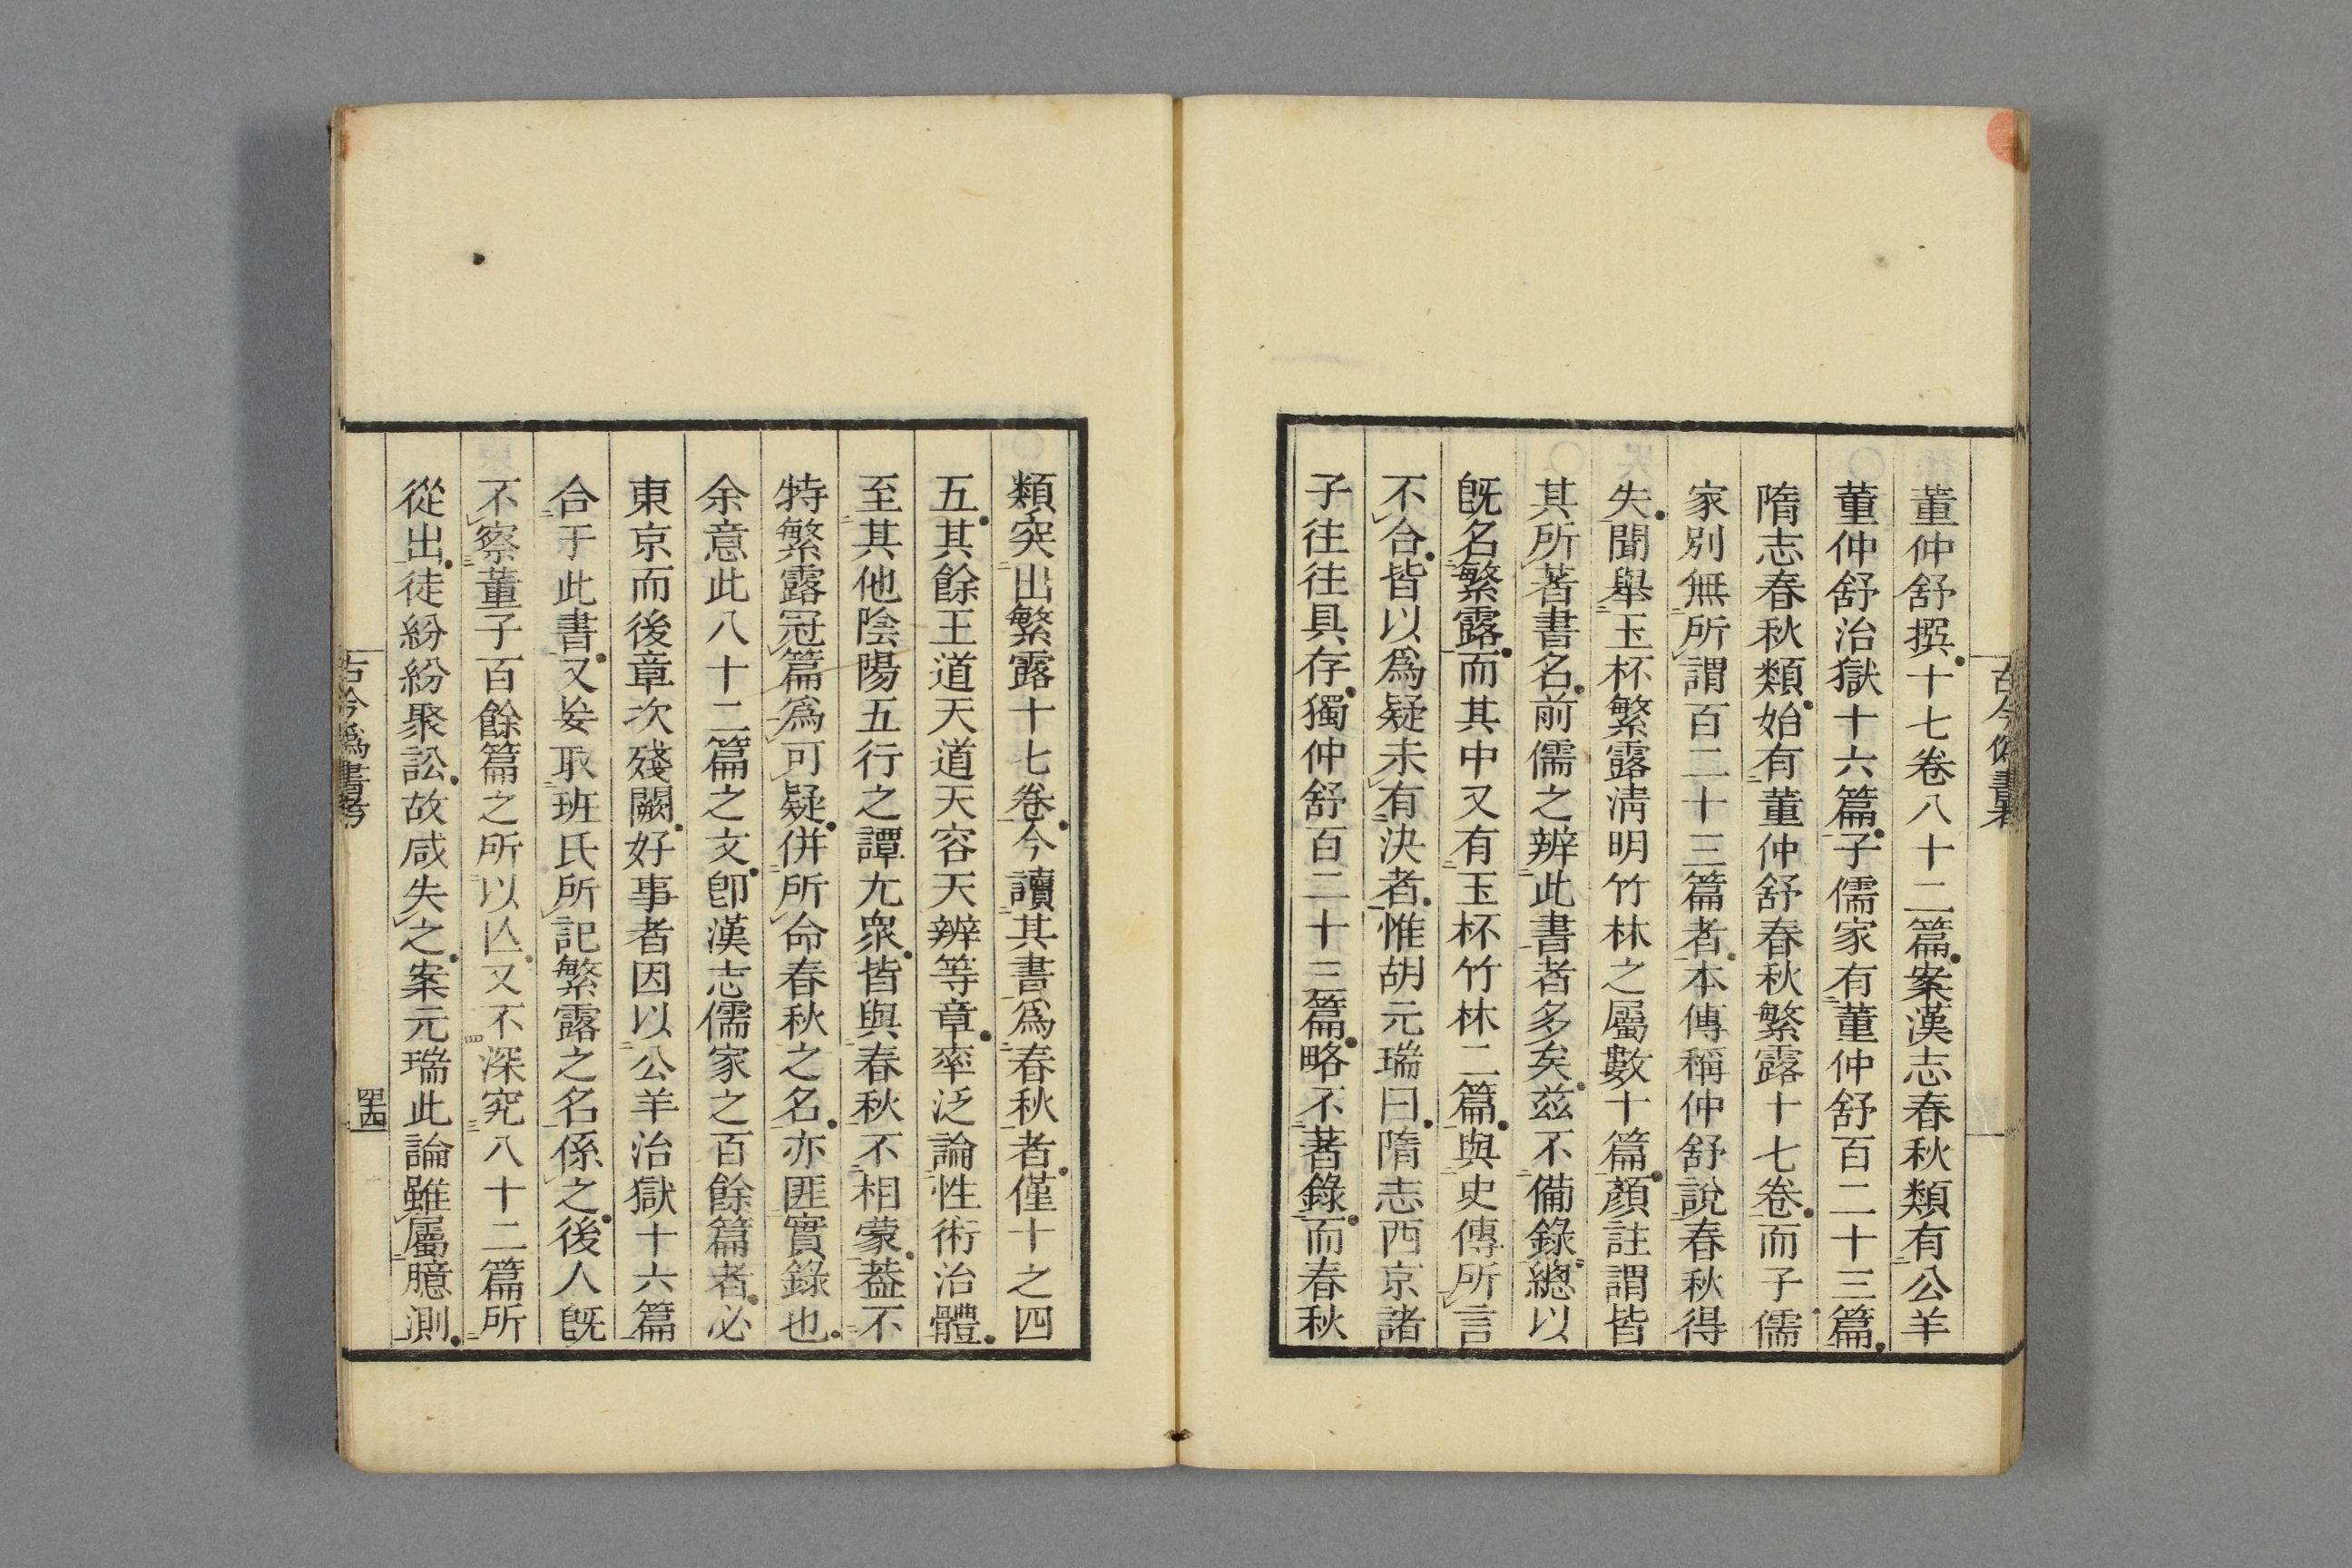 古今僞書考
董仲舒撰十七卷八十二篇案漢志春秋類有公羊
董仲舒治獄十六篇子儒家有董仲舒百二十三篇
隋志春秋類始有董仲舒春秋繁露十七卷而子儒
家別無所謂百二十三篇者本傳稱仲舒說春秋得
失聞舉玉杯繁露淸明竹林之屬數十篇顏註謂皆
其所著書名前儒之辨此書者多矣茲不備錄總以
旣名繁露而其中又有玉杯竹林二篇與史傳所言
不合皆以爲疑未有決者惟胡元瑞曰隋志西京諸
子往往具存獨仲舒百二十三篇略不著錄而春秋
類突出繁露十七卷今讀其書爲春秋者僅十之四
五其餘王道天道天容天辨等章率泛論性術治體
至其他陰陽五行之譚尢衆皆與春秋不相蒙葢不
特繁露冠篇爲可疑併所命春秋之名亦匪實錄也
余意此八十二篇之文卽漢志儒家之百餘篇者必
東京而後章次殘闕好事者因以公羊治獄十六篇
合于此書又妄取班氏所記繁露之名係之後人旣
不察董子百餘篇之所以亾又不深究八十二篇所
從出徒紛紛聚訟故咸失之案元瑞此論雖屬臆測
古今僞書考
四十四